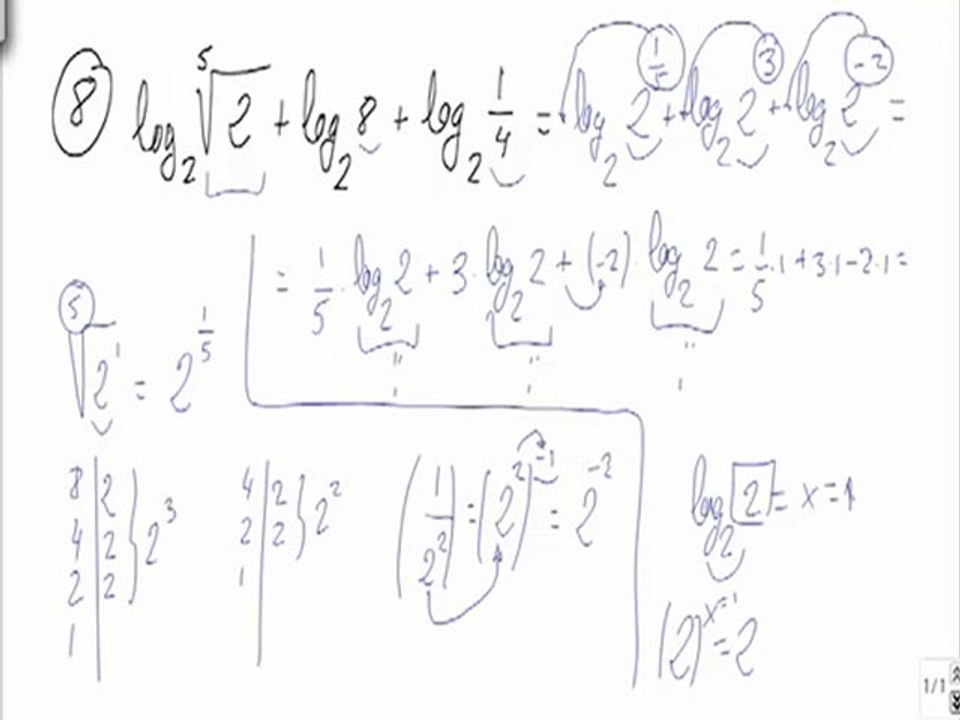 ⑧ log₂ ⁵√2 + log₂ 8 + log₂ 1/4 = log₂ 2^(1/5) + log₂ 2^3 + log₂ 2^(-2) =
= 1/5 · log₂ 2 + 3 · log₂ 2 + (-2) · log₂ 2 = 1/5 · 1 + 3·1 - 2·1 =
" " "
1 1 1
⁵√2¹ = 2^(1/5)
8 | 2
4 | 2
2 | 2
1 |
} 2³
4 | 2
2 | 2
1 |
} 2²
(1/2²) = (2²)^(-1) = 2^(-2)
log₂ 2 = x = 1
(2)^(x=1) = 2
1/1